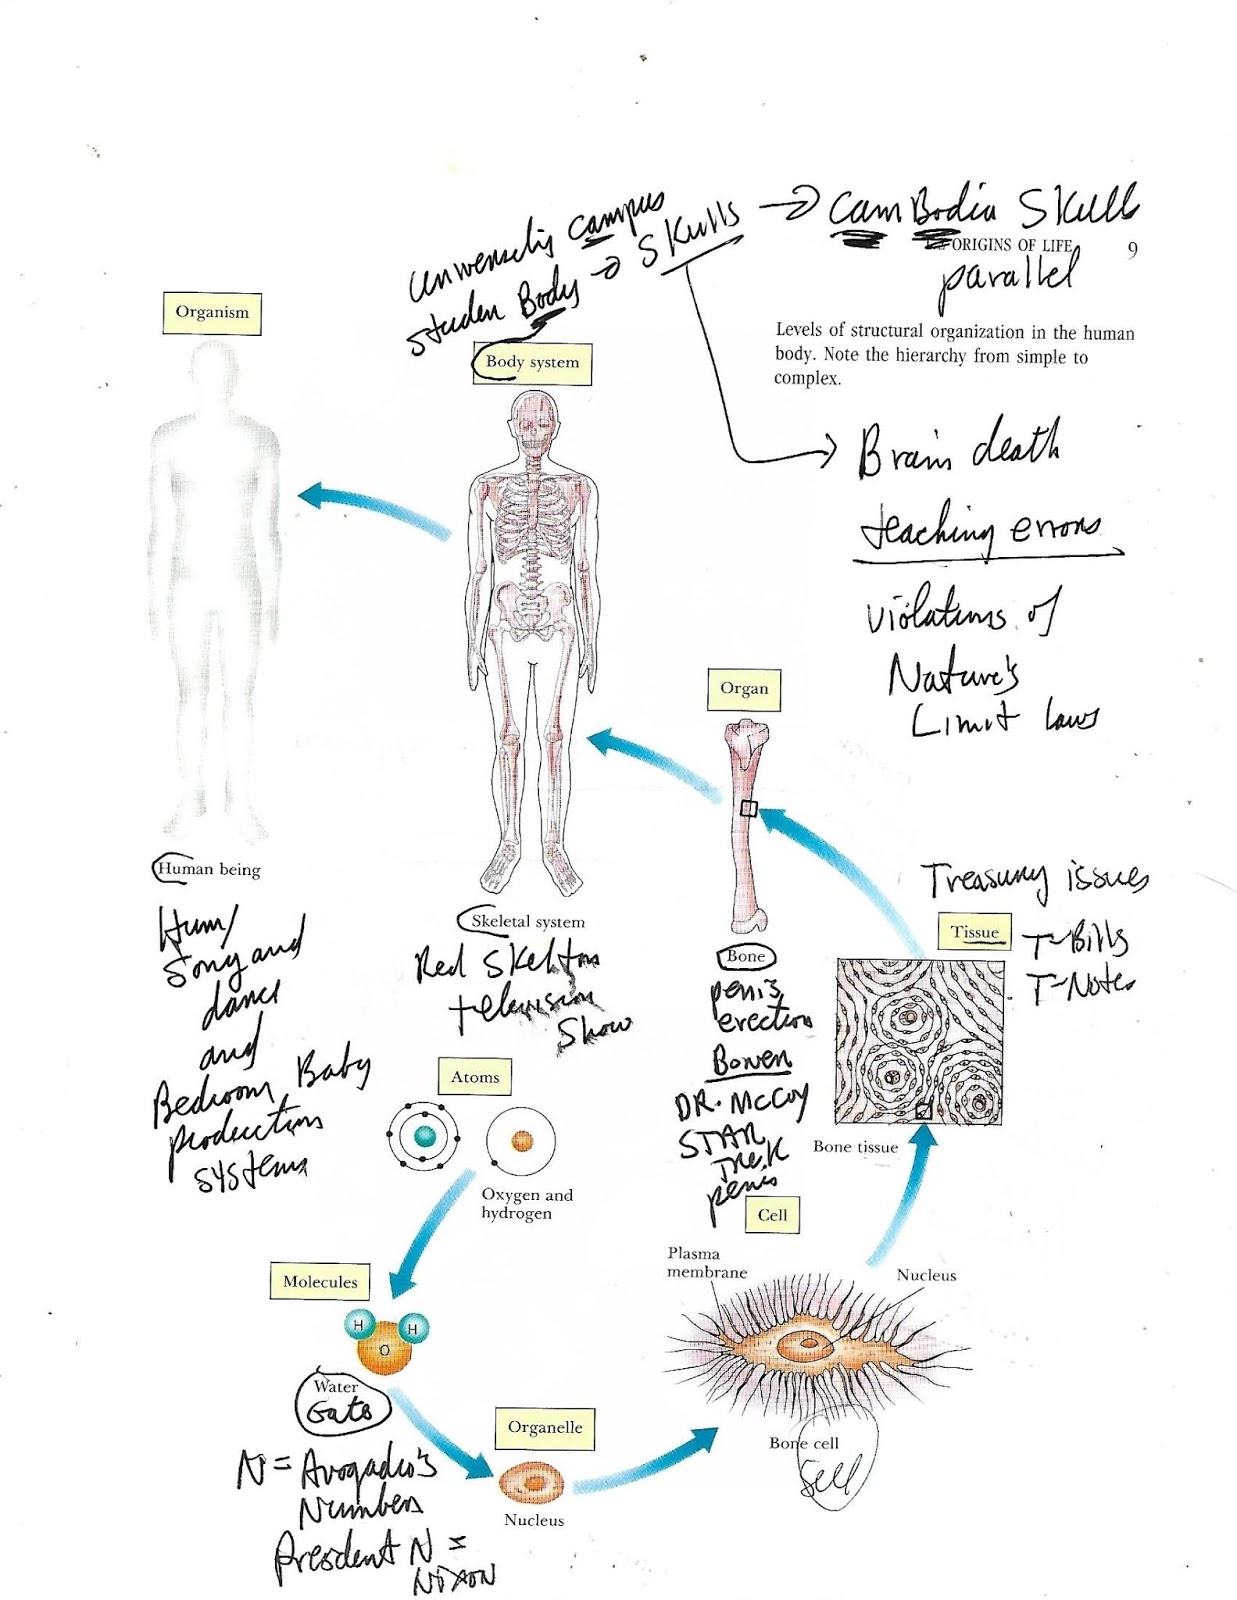 University campus
studen Body → Skulls → CamBodia Skull
ORIGINS OF LIFE 9
parallel
Levels of structural organization in the human
body. Note the hierarchy from simple to
complex.
Organism
Body system
Brain death
teaching errors
violations of
Nature's
Limit laws
Organ
Human being
Hum/
Song and
dance
and
Bedroom Baby
production
systems
Skeletal system
Red Skelton
television
Show
Bone
penis
erection
Bowen
DR. McCoy
STAR
Trek
penis
Treasury issues
Tissue
T-Bills
T-Notes
Bone tissue
Atoms
Oxygen and
hydrogen
Molecules
H H
O
Water
Gate
N = Avogadro's
Numbers
President N =
NIXON
Organelle
Nucleus
Cell
Plasma
membrane
Nucleus
Bone cell
Sell